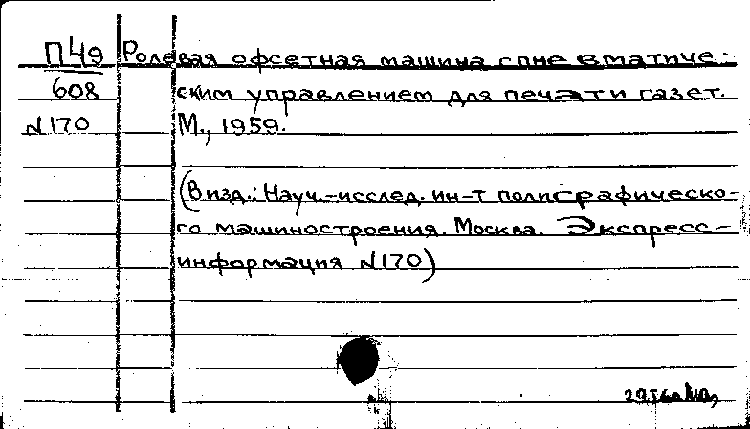 П49 Ролевая офсетная машина с пневматиче-
608 ским управлением для печати газет.
N170 М., 1959.
(В изд.: Науч.-исслед. ин-т полиграфическо-
го машиностроения. Москва. Экспресс-
информация N170)